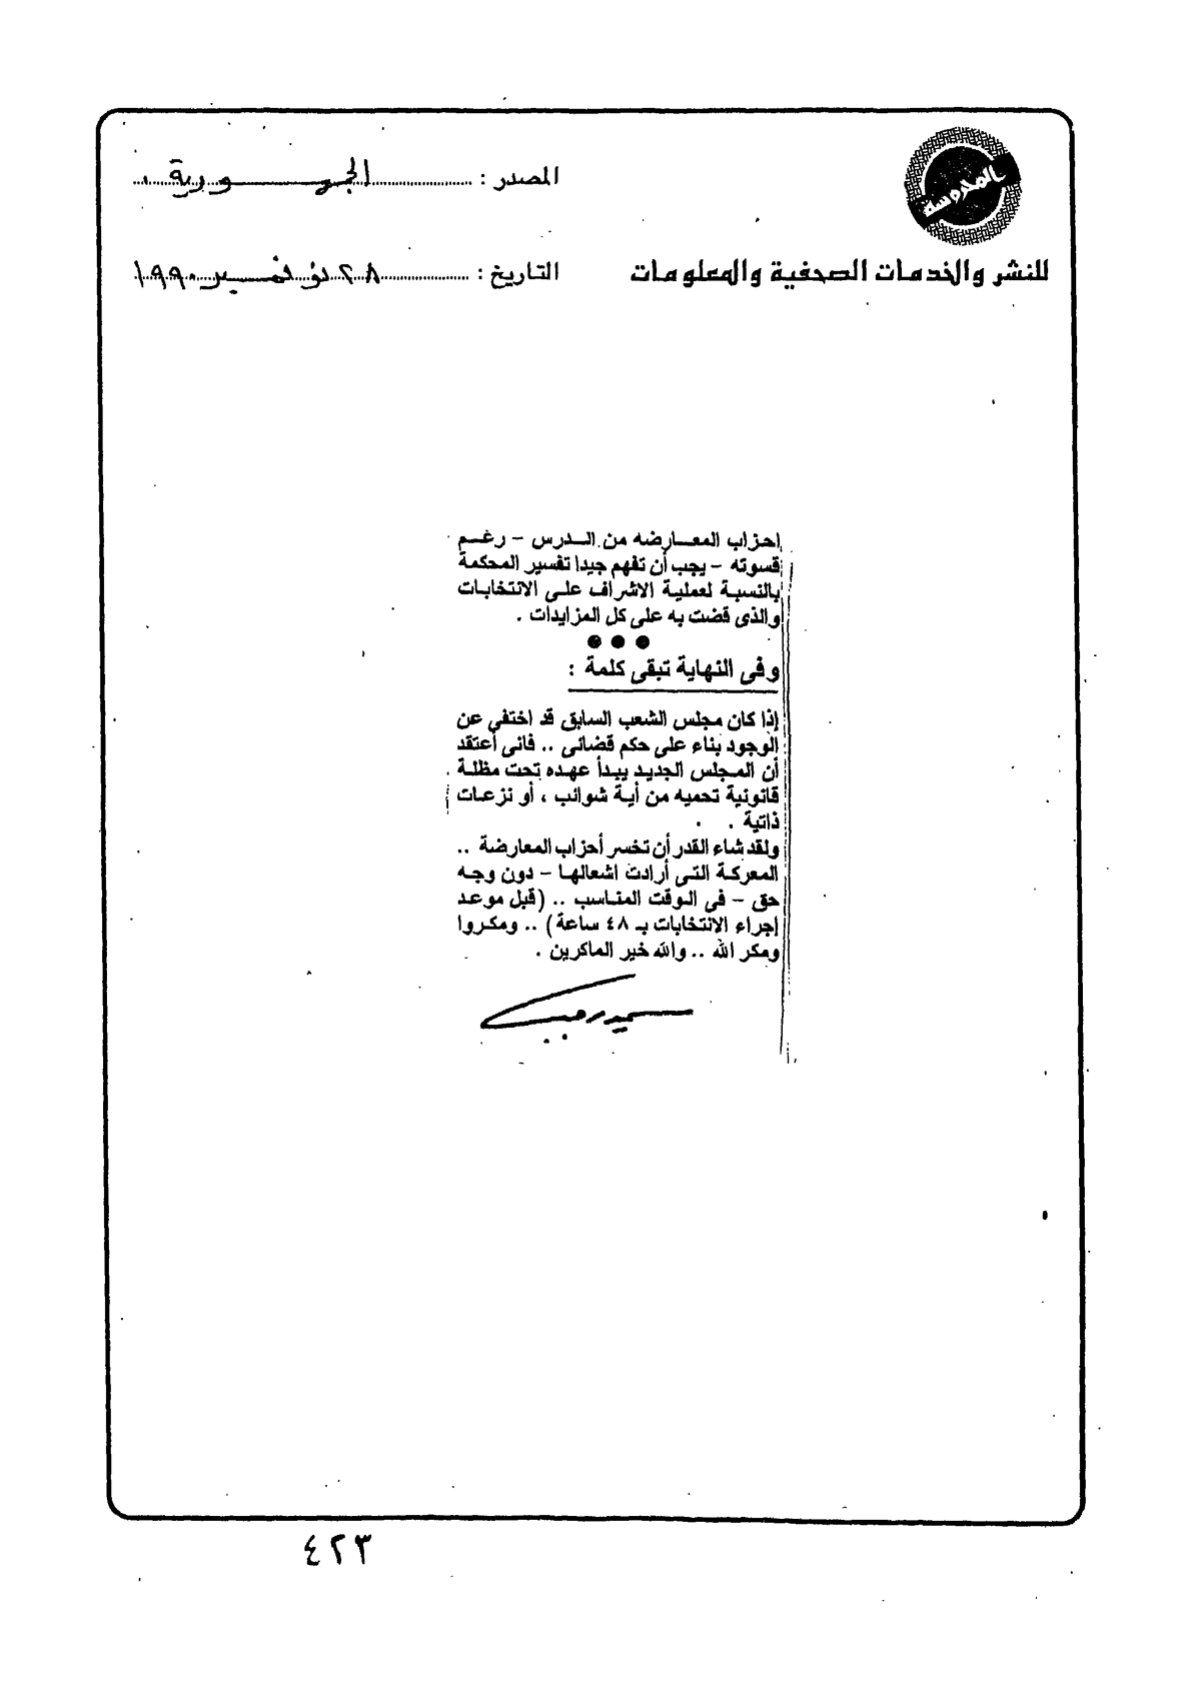 المحروسة
للنشر والخدمات الصحفية والمعلومات
المصدر : الجمهورية
التاريخ : ٢٨ نوفمبر ١٩٩٠
احزاب المعارضه من الدرس - رغم
قسوته - يجب أن تفهم جيدا تفسير المحكمة
بالنسبة لعملية الاشراف على الانتخابات
والذى قضت به على كل المزايدات .
●●●
وفى النهاية تبقى كلمة :
إذا كان مجلس الشعب السابق قد اختفى عن
الوجود بناء على حكم قضائى .. فانى أعتقد
أن المجلس الجديد يبدأ عهده تحت مظلة
قانونية تحميه من أية شوائب ، أو نزعات
ذاتية .
ولقد شاء القدر أن تخسر أحزاب المعارضة ..
المعركة التى أرادت اشعالها - دون وجه
حق - فى الوقت المناسب .. (قبل موعد
إجراء الانتخابات بـ ٤٨ ساعة) .. ومكروا
ومكر الله .. والله خير الماكرين .
سمير رجب
٤٢٣